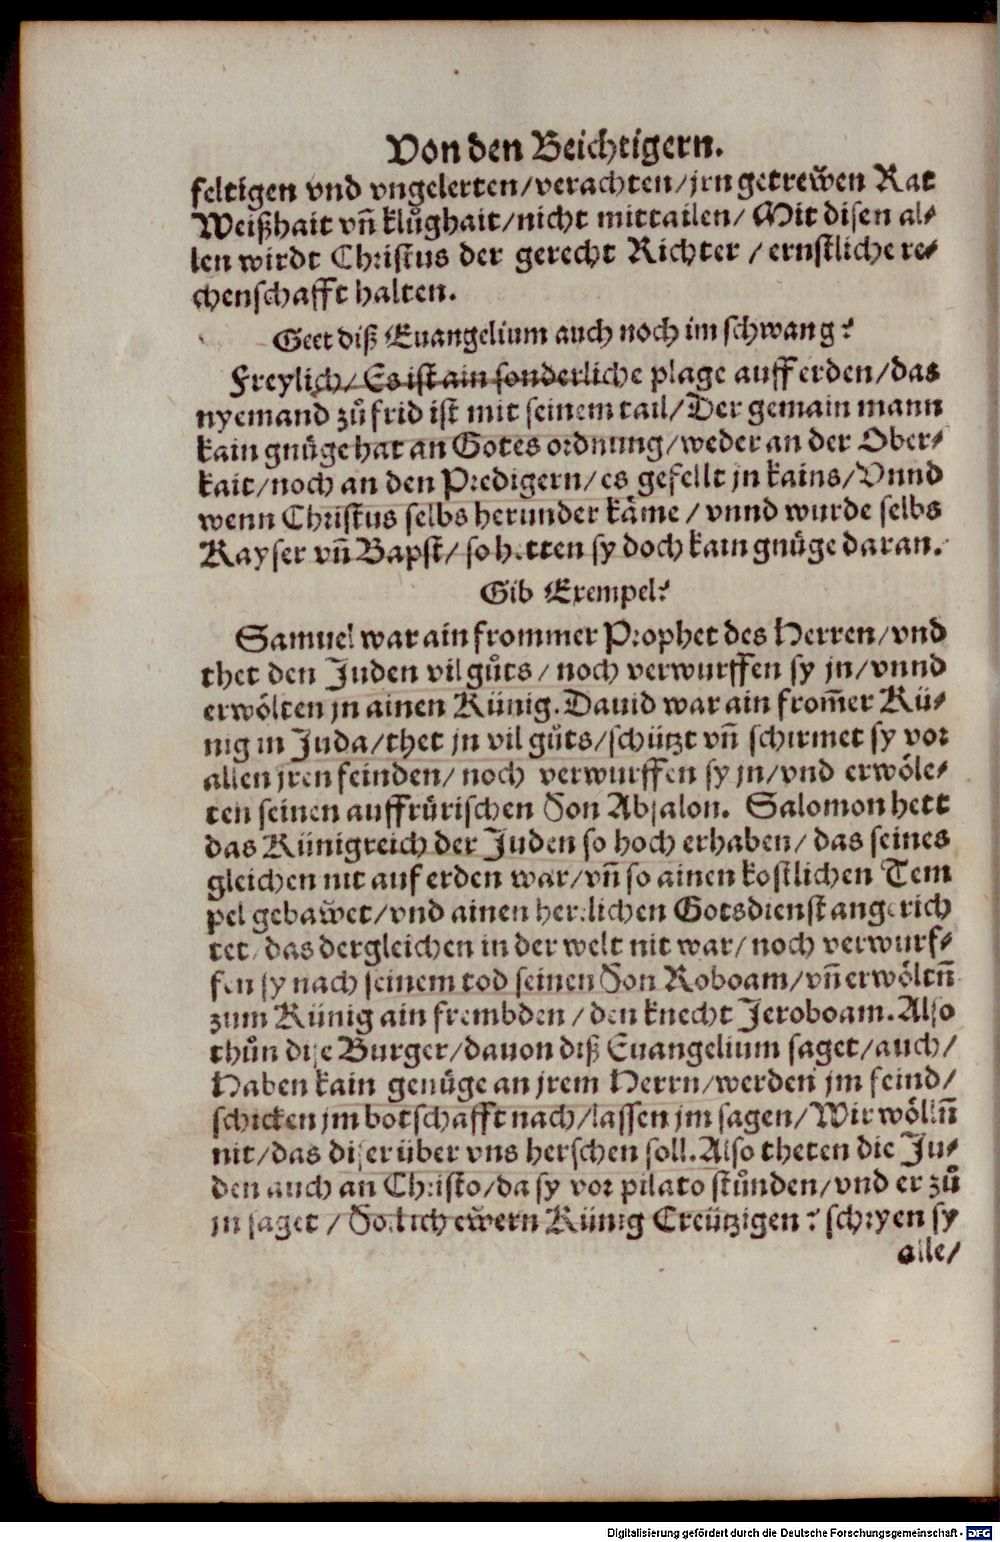 Von den Beichtigern.
feltigen vnd vngelerten/verachten/jrn getrewͤen Rat
Weißhait vn̄ klůghait/nicht mittailen/ Mit disen al⸗
len wirdt Christus der gerecht Richter / ernstliche re⸗
chenschafft halten.
Geet diß Euangelium auch noch im schwang?
Freylich/ Es ist ain sonderliche plage auff erden/das
nyemand zůfrid ist mit seinem tail/Der gemain mann
kain gnüge hat an Gotes ordnung/weder an der Ober⸗
kait/noch an den Predigern/es gefellt jn kains/Vnnd
wenn Christus selbs herunder käme / vnnd wurde selbs
Kayser vn̄ Bapst/ so hetten sy doch kain gnüge daran.
Gib Exempel?
Samuel war ain frommer Prophet des Herren/vnd
thet den Juden vil gůts / noch verwurffen sy jn/vnnd
erwölten jn ainen Künig. Dauid war ain from̄er Kü⸗
nig in Juda/thet jn vil gůts/schützt vn̄ schirmet sy vor
allen jren feinden/ noch verwurffen sy jn/vnd erwöle⸗
ten seinen auffrürischen Son Absalon. Salomon hett
das Künigreich der Juden so hoch erhaben/ das seines
gleichen nit auf erden war/vn̄ so ainen kostlichen Tem
pel gebawͤet/vnd ainen herrlichen Gotsdienst angerich
tet/das dergleichen in der welt nit war/ noch verwurf⸗
fen sy nach seinem tod seinen Son Roboam/vn̄ erwöltn̄
zum Künig ain frembden / den knecht Jeroboam. Also
thůn dise Burger/dauon diß Euangelium saget/auch/
Haben kain genüge an jrem Herrn/werden jm feind/
schicken jm botschafft nach/lassen jm sagen/Wir wölln̄
nit/das diser über vns herschen soll. Also theten die Ju⸗
den auch an Christo/da sy vor pilato stůnden/vnd er zů
jn saget / Sol ich ewͤern Künig Creützigen? schryen sy
alle/
Digitalisierung gefördert durch die Deutsche Forschungsgemeinschaft - DFG